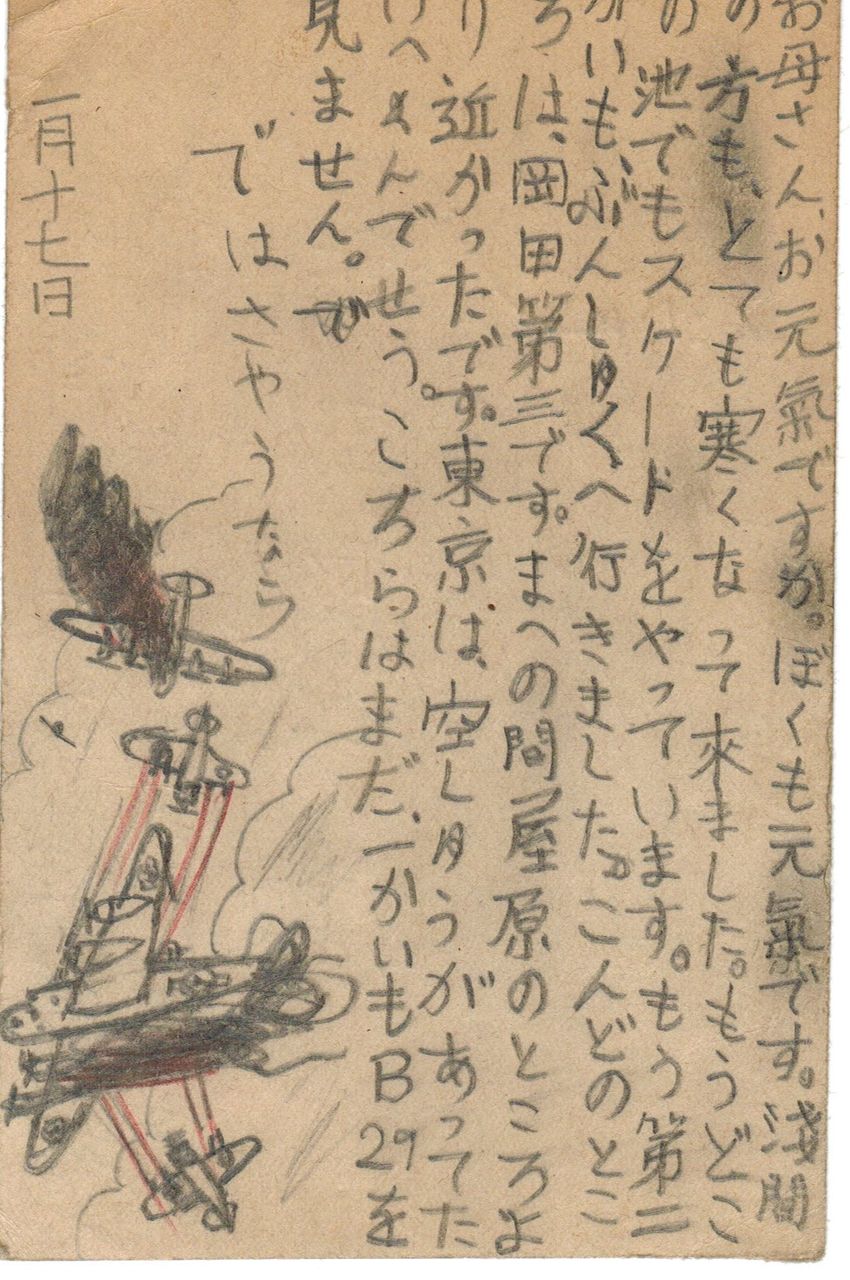 お母さん、お元氣ですか。ぼくも元氣です。浅間
の方も、とても寒くなって來ました。もうどこ
の池でもスケードをやっています。もう第二
かいも、ぶんしゅくへ行きました。こんどのとこ
ろは、岡田第三です。まへの問屋原のところよ
り近かったです。東京は、空しゅうがあってた
いへんでせう。こちらはまだ、一かいもB29を
見ません。
ではさやうなら
一月十七日